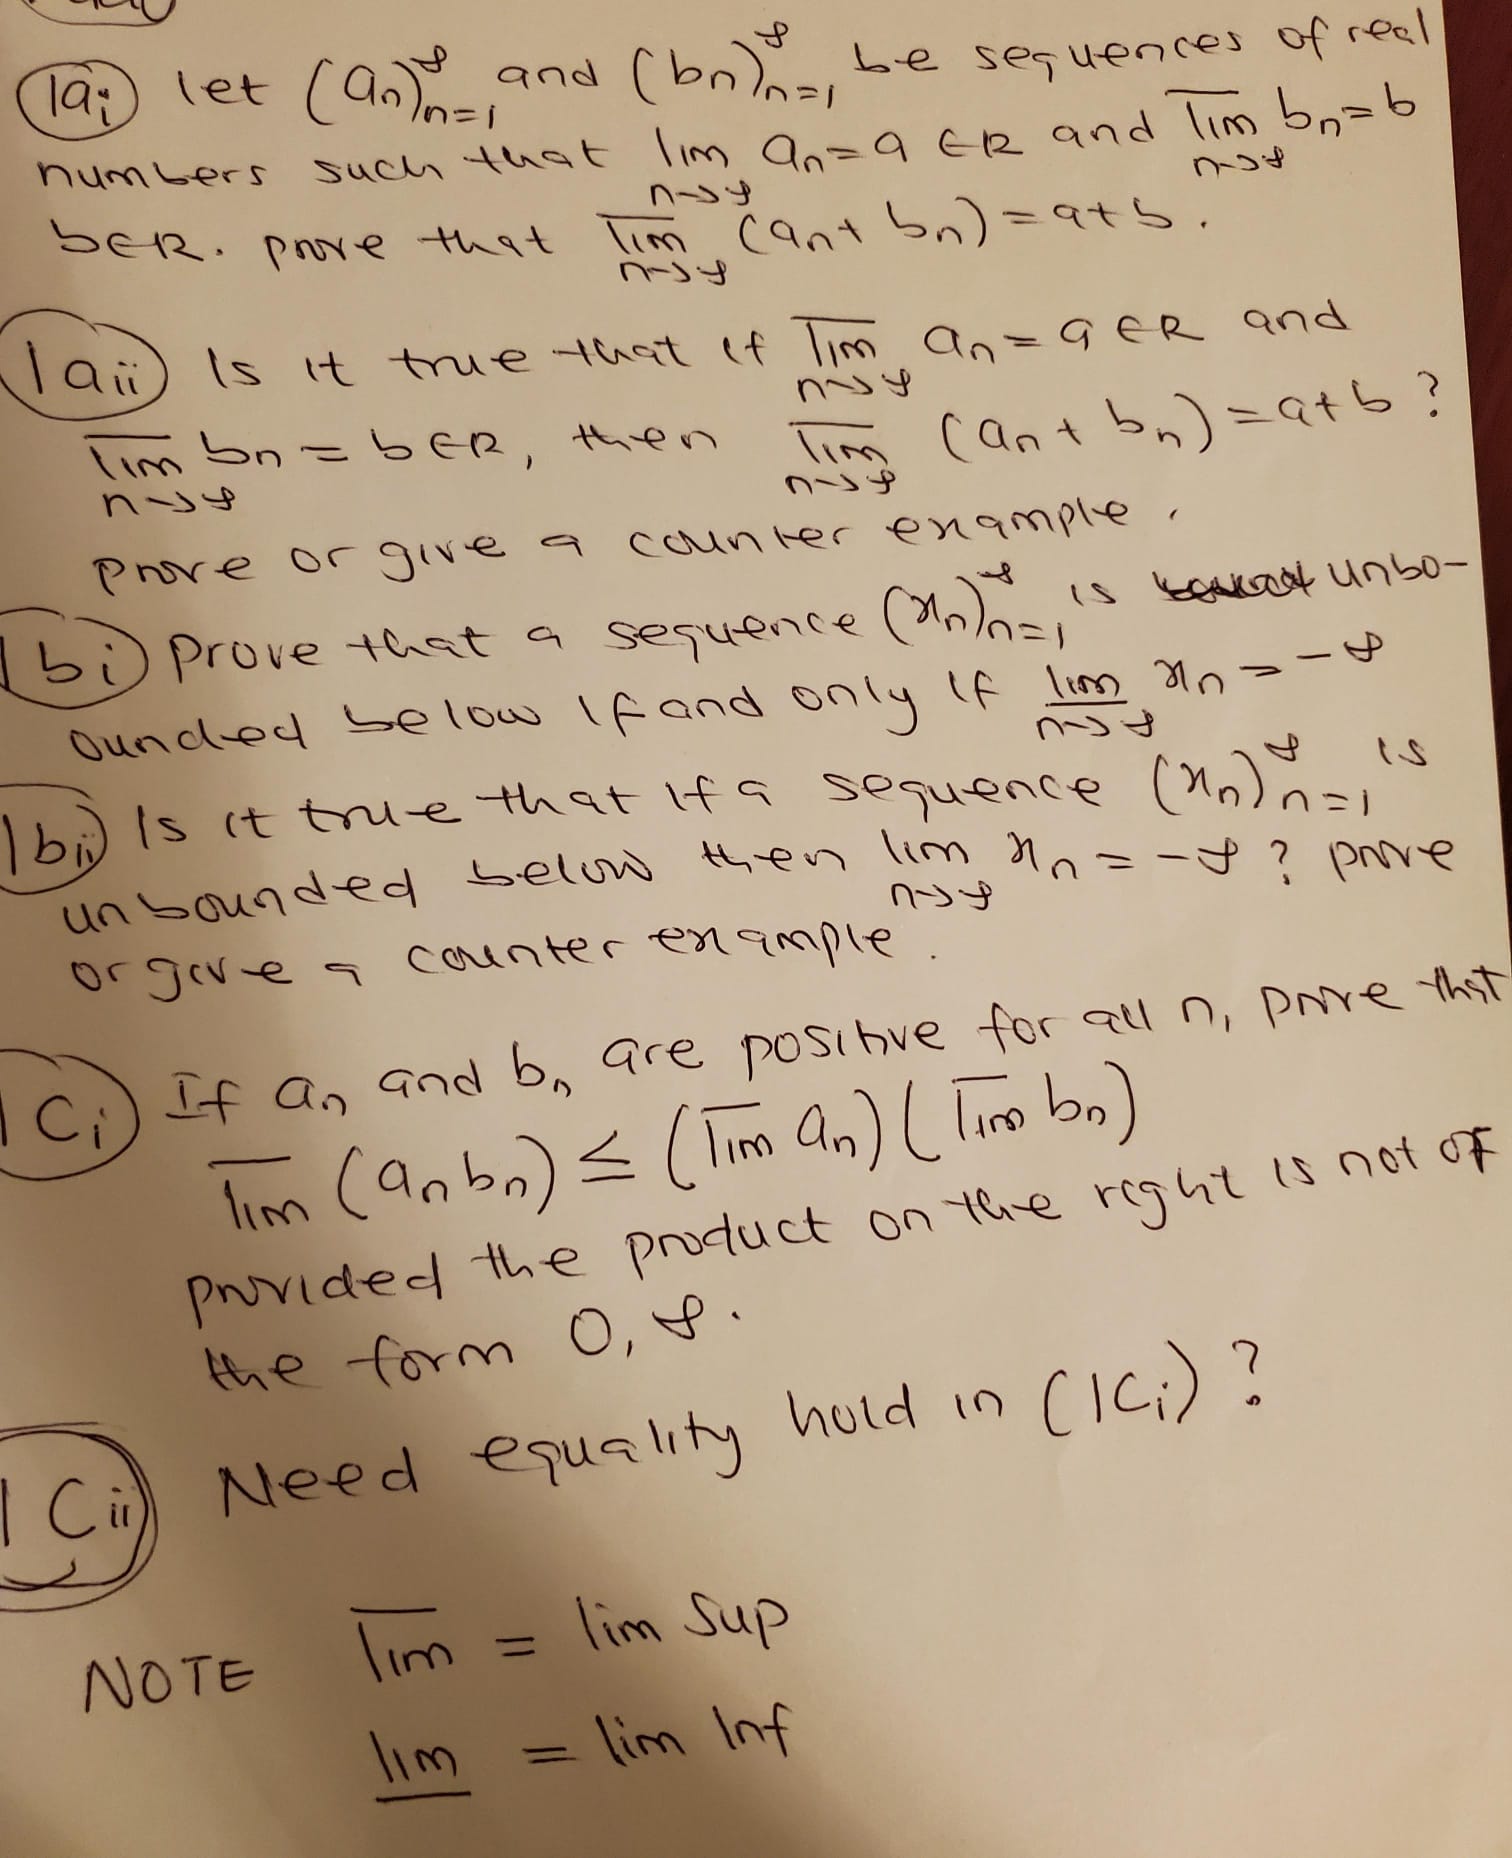 1ai let (an)∞n=1 and (bn)∞n=1 be sequences of real
numbers such that lim n→∞ an = a ∈ R and l̅i̅m̅ n→∞ bn = b
b∈R. prove that l̅i̅m̅ n→∞ (an + bn) = a+b.
1aii Is it true that if l̅i̅m̅ n→∞ an = a ∈ R and
l̅i̅m̅ n→∞ bn = b ∈ R, then l̅i̅m̅ n→∞ (an + bn) = a+b ?
prove or give a counter example.
1bi Prove that a sequence (xn)∞n=1 is unbo-
ounded below if and only if l̲i̲m̲ n→∞ xn = -∞
1bii Is it true that if a sequence (xn)∞n=1 is
unbounded below then lim n→∞ xn = -∞ ? prove
or give a counter example.
1ci If an and bn are positive for all n, prove that
l̅i̅m̅ (anbn) ≤ (l̅i̅m̅ an)(l̅i̅m̅ bn)
provided the product on the right is not of
the form 0, ∞.
1cii Need equality hold in (1ci) ?
NOTE l̅i̅m̅ = lim Sup
l̲i̲m̲ = lim Inf